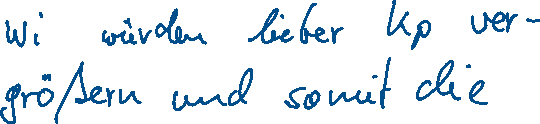 Wi würden lieber Kp ver-
größern und somit die